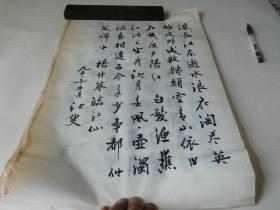 滚长江东逝水浪花淘尽英
雄是非成败转頭空青山依旧
在几度夕阳红白髮渔樵
江渚上惯看秋月春风一壶濁
酒喜相逢古今多少事都付
笑谈中 杨升菴临江仙
年五月 叟